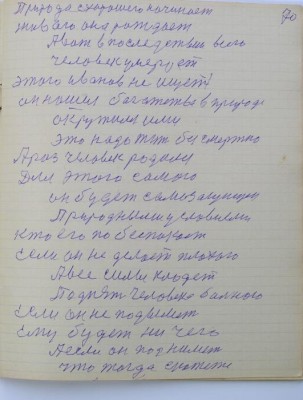 70
Природа с хорошего начинает
живого она рождает
А вот в последствии всего
человек умерает
этого Иванов не ищет
он нашел богатство в природе
окружили ими
Это надо быть бессмертно
А раз человек родили
Для этого самого
он будет самозащитен
Природными условиями
кто его побеспокоит
если он не делает плохого
А все силы кладет
Поднять человека больного
Если он не поднимет
Ему будет ни чего
А если он поднимет
что тогда скажете